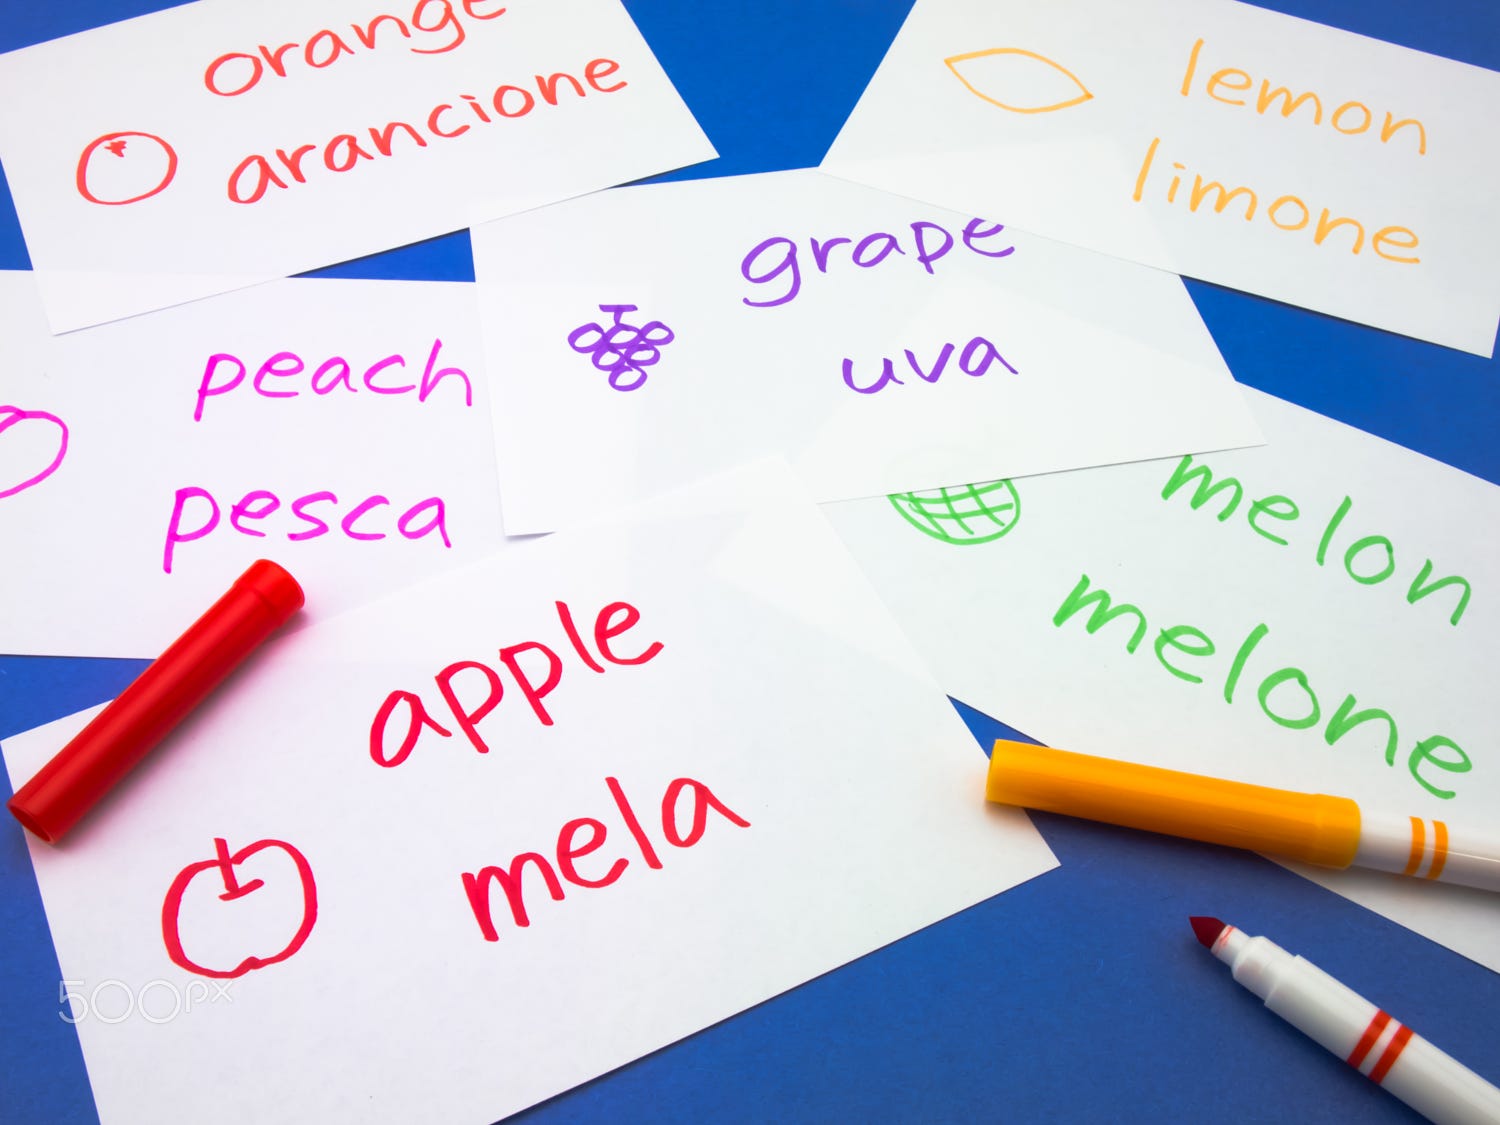 orange
arancione
lemon
limone
grape
uva
peach
pesca
melon
melone
apple
mela
500px